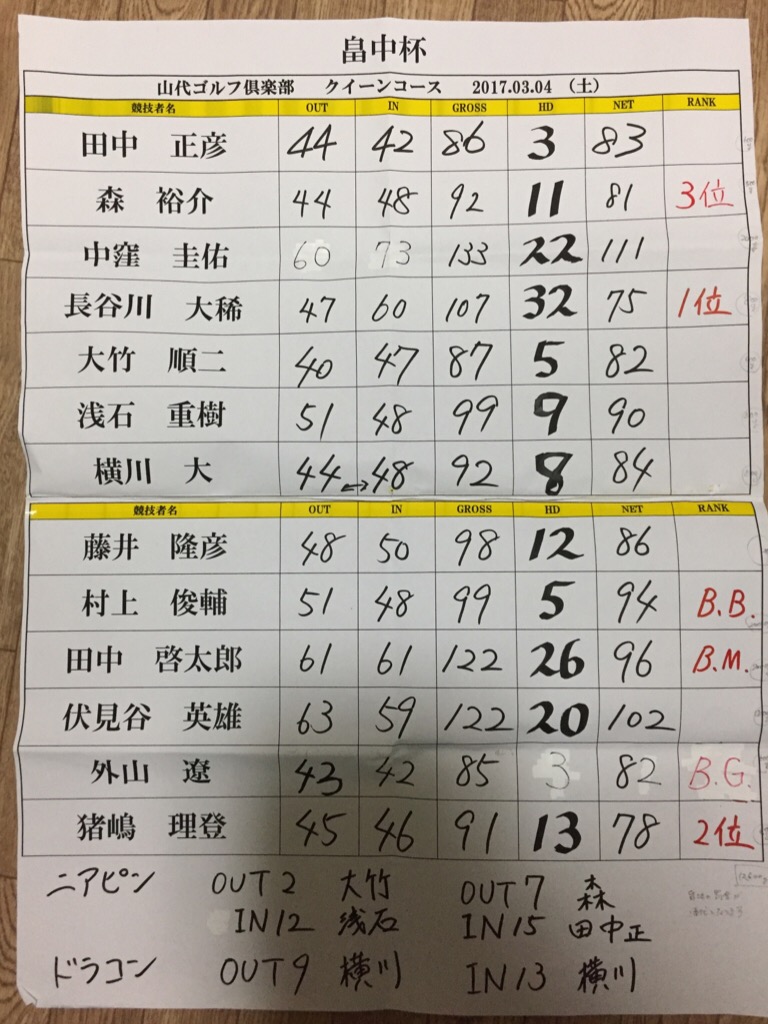 畠中杯
山代ゴルフ倶楽部 クイーンコース 2017.03.04 (土)
競技者名 OUT IN GROSS HD NET RANK
田中 正彦 44 42 86 3 83
森 裕介 44 48 92 11 81 3位
中窪 圭佑 60 73 133 22 111
長谷川 大稀 47 60 107 32 75 1位
大竹 順二 40 47 87 5 82
浅石 重樹 51 48 99 9 90
横川 大 44 ↔ 48 92 8 84
競技者名 OUT IN GROSS HD NET RANK
藤井 隆彦 48 50 98 12 86
村上 俊輔 51 48 99 5 94 B.B.
田中 啓太郎 61 61 122 26 96 B.M.
伏見谷 英雄 63 59 122 20 102
外山 遼 43 42 85 3 82 B.G.
猪嶋 理登 45 46 91 13 78 2位
ニアピン OUT2 大竹 OUT7 森
IN12 浅石 IN15 田中正
ドラコン OUT9 横川 IN13 横川